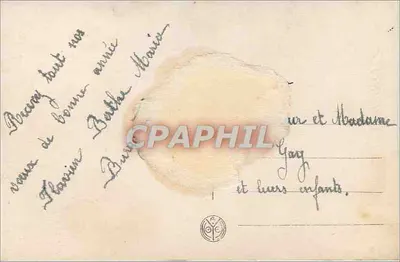 Recevez tout nos
vœux de bonne année
Flavien Berthe Maria
CPARHIL
et Madame
Gay
et luers enfants.